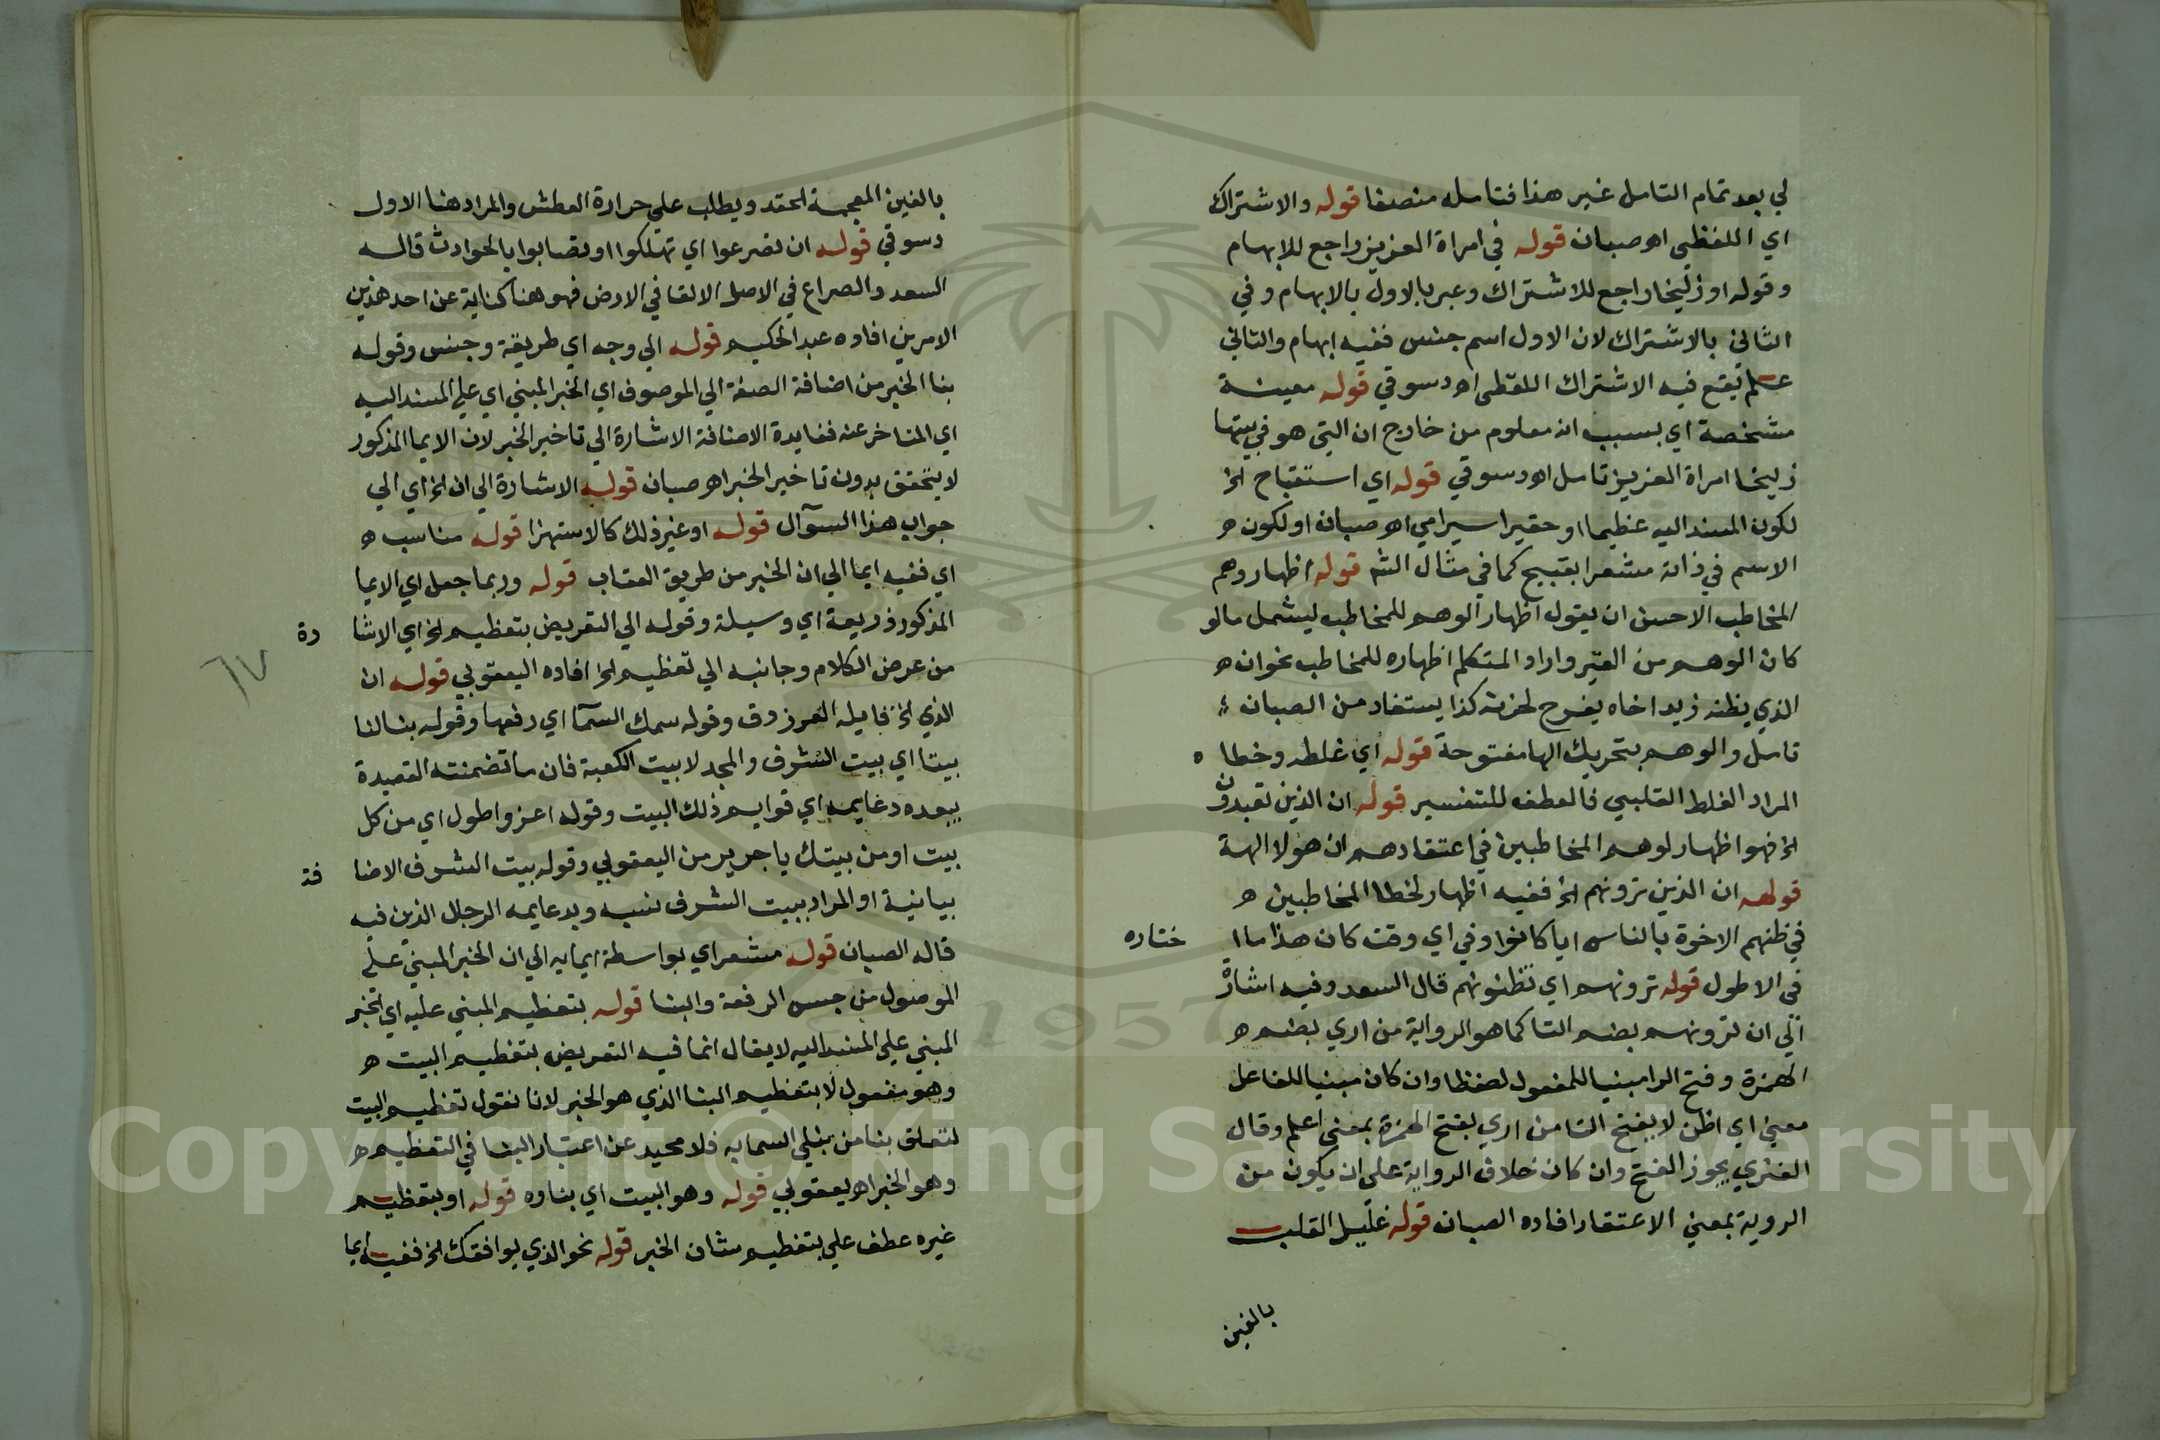 لي بعد تمام التامل غير هذا فتامله منصفا قوله والاشتراك
اي اللفظي اه صبان قوله في امراة العزيز راجع للابهام
وقوله او زليخا راجع للاشتراك وعبر بالاول بالابهام وفي
الثاني بالاشتراك لان الاول اسم جنس ففيه ابهام والثاني
علم تقع فيه الاشتراك اللفظي اه دسوقي قوله معينة
مشخصة اي بسبب انه معلوم من خارج ان التي هو في بيتها
زليخا امراة العزيز تامل اه دسوقي قوله اي استقباح الخ
لكون المسند اليه عظيما او حقيرا سيرامي اه صبان او لكون ه
الاسم في ذاته مشعرا بقبيح كما في مثال الشه قوله اظهار وهم
المخاطب الاحسن ان يقول اظهار الوهم للمخاطب ليشمل ما لو
كان الوهم من الغير واراد المتكلم اظهاره للمخاطب نحو ان ه
الذي يظنه زيد اخاه يفرح لحزنه كذا يستفاد من الصبان
تامل والوهم بتحريك الها مفتوحة قوله اي غلطه وخطا ه
المراد الغلط القلبي فالعطف للتفسير قوله ان الذين تعبدون
الخ فهو اظهار لوهم المخاطبين في اعتقادهم ان هولا الهة
قوله ان الذين ترونهم الخ ففيه اظهار لخطا المخاطبين ه
في ظنهم الاخوة بالناس ايا كانوا وفي اي وقت كان هذا ما ا ختاره
في الاطول قوله ترونهم اي تظنونهم قال السعد وفيه اشارة
الي ان ترونهم بضم التا كما هو الرواية من اري بضم ه
الهمزة وفتح الرا مبنيا للمفعول لفظا وان كان مبنيا للفاعل
معني اي اظن لا بفتح التا من اري بفتح الهمزة بمعني اعلم وقال
الفنري يجوز الفتح وان كان خلاف الرواية علي ان يكون من
الروية بمعني الاعتقاد افاده الصبان قوله غليل القلب
بالغين
بالغين المعجمة الحقد ويطلب علي حرارة العطش والمراد هنا الاول
دسوقي قوله ان تصرعوا اي تهلكوا او تصابوا بالحوادث قاله
السعد والصراع في الاصل الالقا في الارض فهو هنا كناية عن احد هذين
الامرين افاده عبد الحكيم قوله الي وجه اي طريقة وجنس وقوله
بنا الخبر من اضافة الصفة الي الموصوف اي الخبر المبني اي علي المسند اليه
اي المتاخر عنه ففايدة الاضافة الاشارة الي تاخير الخبر لان الايما المذكور
لا يتحقق بدون تاخير الخبر اه صبان قوله الاشارة الي ان الخ اي الي
جواب هذا السؤال قوله او غير ذلك كالاستهزا قوله مناسب ه
اي ففيه ايما الي ان الخبر من طريق العقاب قوله وربما جعل اي الايما
المذكور ذريعة اي وسيلة وقوله الي التعريض بتعظيم الخ اي الاشا رة
من عرض الكلام وجانبه الي تعظيم الخ افاده اليعقوبي قوله ان
الذي الخ قايله الفرزدق وقوله سمك السما اي رفعها وقوله بنا لنا
بيتا اي بيت الشرف والمجد لا بيت الكعبة فان ما تضمنته القصيدة
يبعده دعايمه اي قوايم ذلك البيت وقوله اعز واطول اي من كل
بيت او من بيتك يا جرير من اليعقوبي وقوله بيت الشرف الاضا فة
بيانية او المراد ببيت الشرف نسبه وبدعايمه الرجال الذين فيه
قاله الصبان قوله مشعر اي بواسطة ايمايه الي ان الخبر المبني علي
الموصول من جنس الرفعة والبنا قوله بتعظيم المبني عليه اي الخبر
المبني علي المسند اليه لا يقال انما فيه التعريض بتعظيم البيت ه
وهو مفعول لا بتعظيم البنا الذي هو الخبر لانا نقول تعظيم البيت
لتعلق بنا من بني السما به فلا محيد عن اعتبار البنا في التعظيم ه
وهو الخبر اه يعقوبي قوله وهو البيت اي بناوه قوله او بتعظيم
غيره عطف علي بتعظيم شان الخبر قوله نحو الذي يوافقك الخ ففيه ايما
٦٧
1957
Copyright © King Saud University